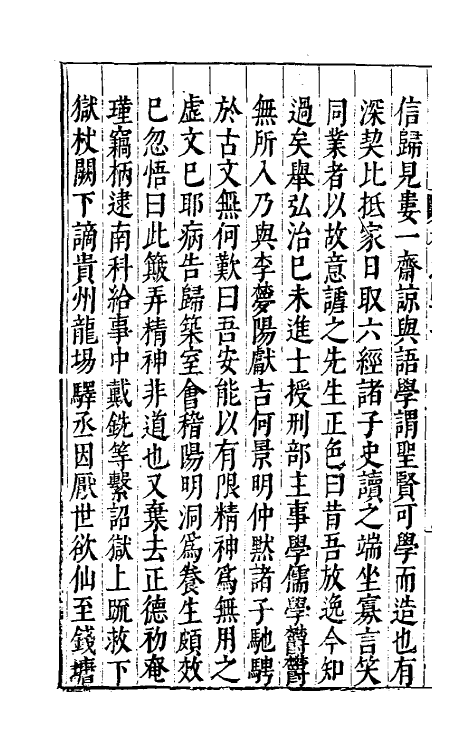 信歸見婁一齋諒與語學謂聖賢可學而造也有
深契比抵家日取六經諸子史讀之端坐寡言笑
同業者以故意謔之先生正色曰昔吾放逸今知
過矣舉弘治巳未進士授刑部主事學儒學鬱鬱
無所入乃與李夢陽獻吉何景明仲默諸子馳騁
於古文無何歎曰吾安能以有限精神爲無用之
虛文巳耶病告歸築室會稽陽明洞爲養生頗效
巳忽悟曰此簸弄精神非道也又棄去正德初奄
瑾竊柄逮南科給事中戴銑等繫詔獄上疏救下
獄杖闕下謫貴州龍場驛丞因厭世欲仙至錢塘